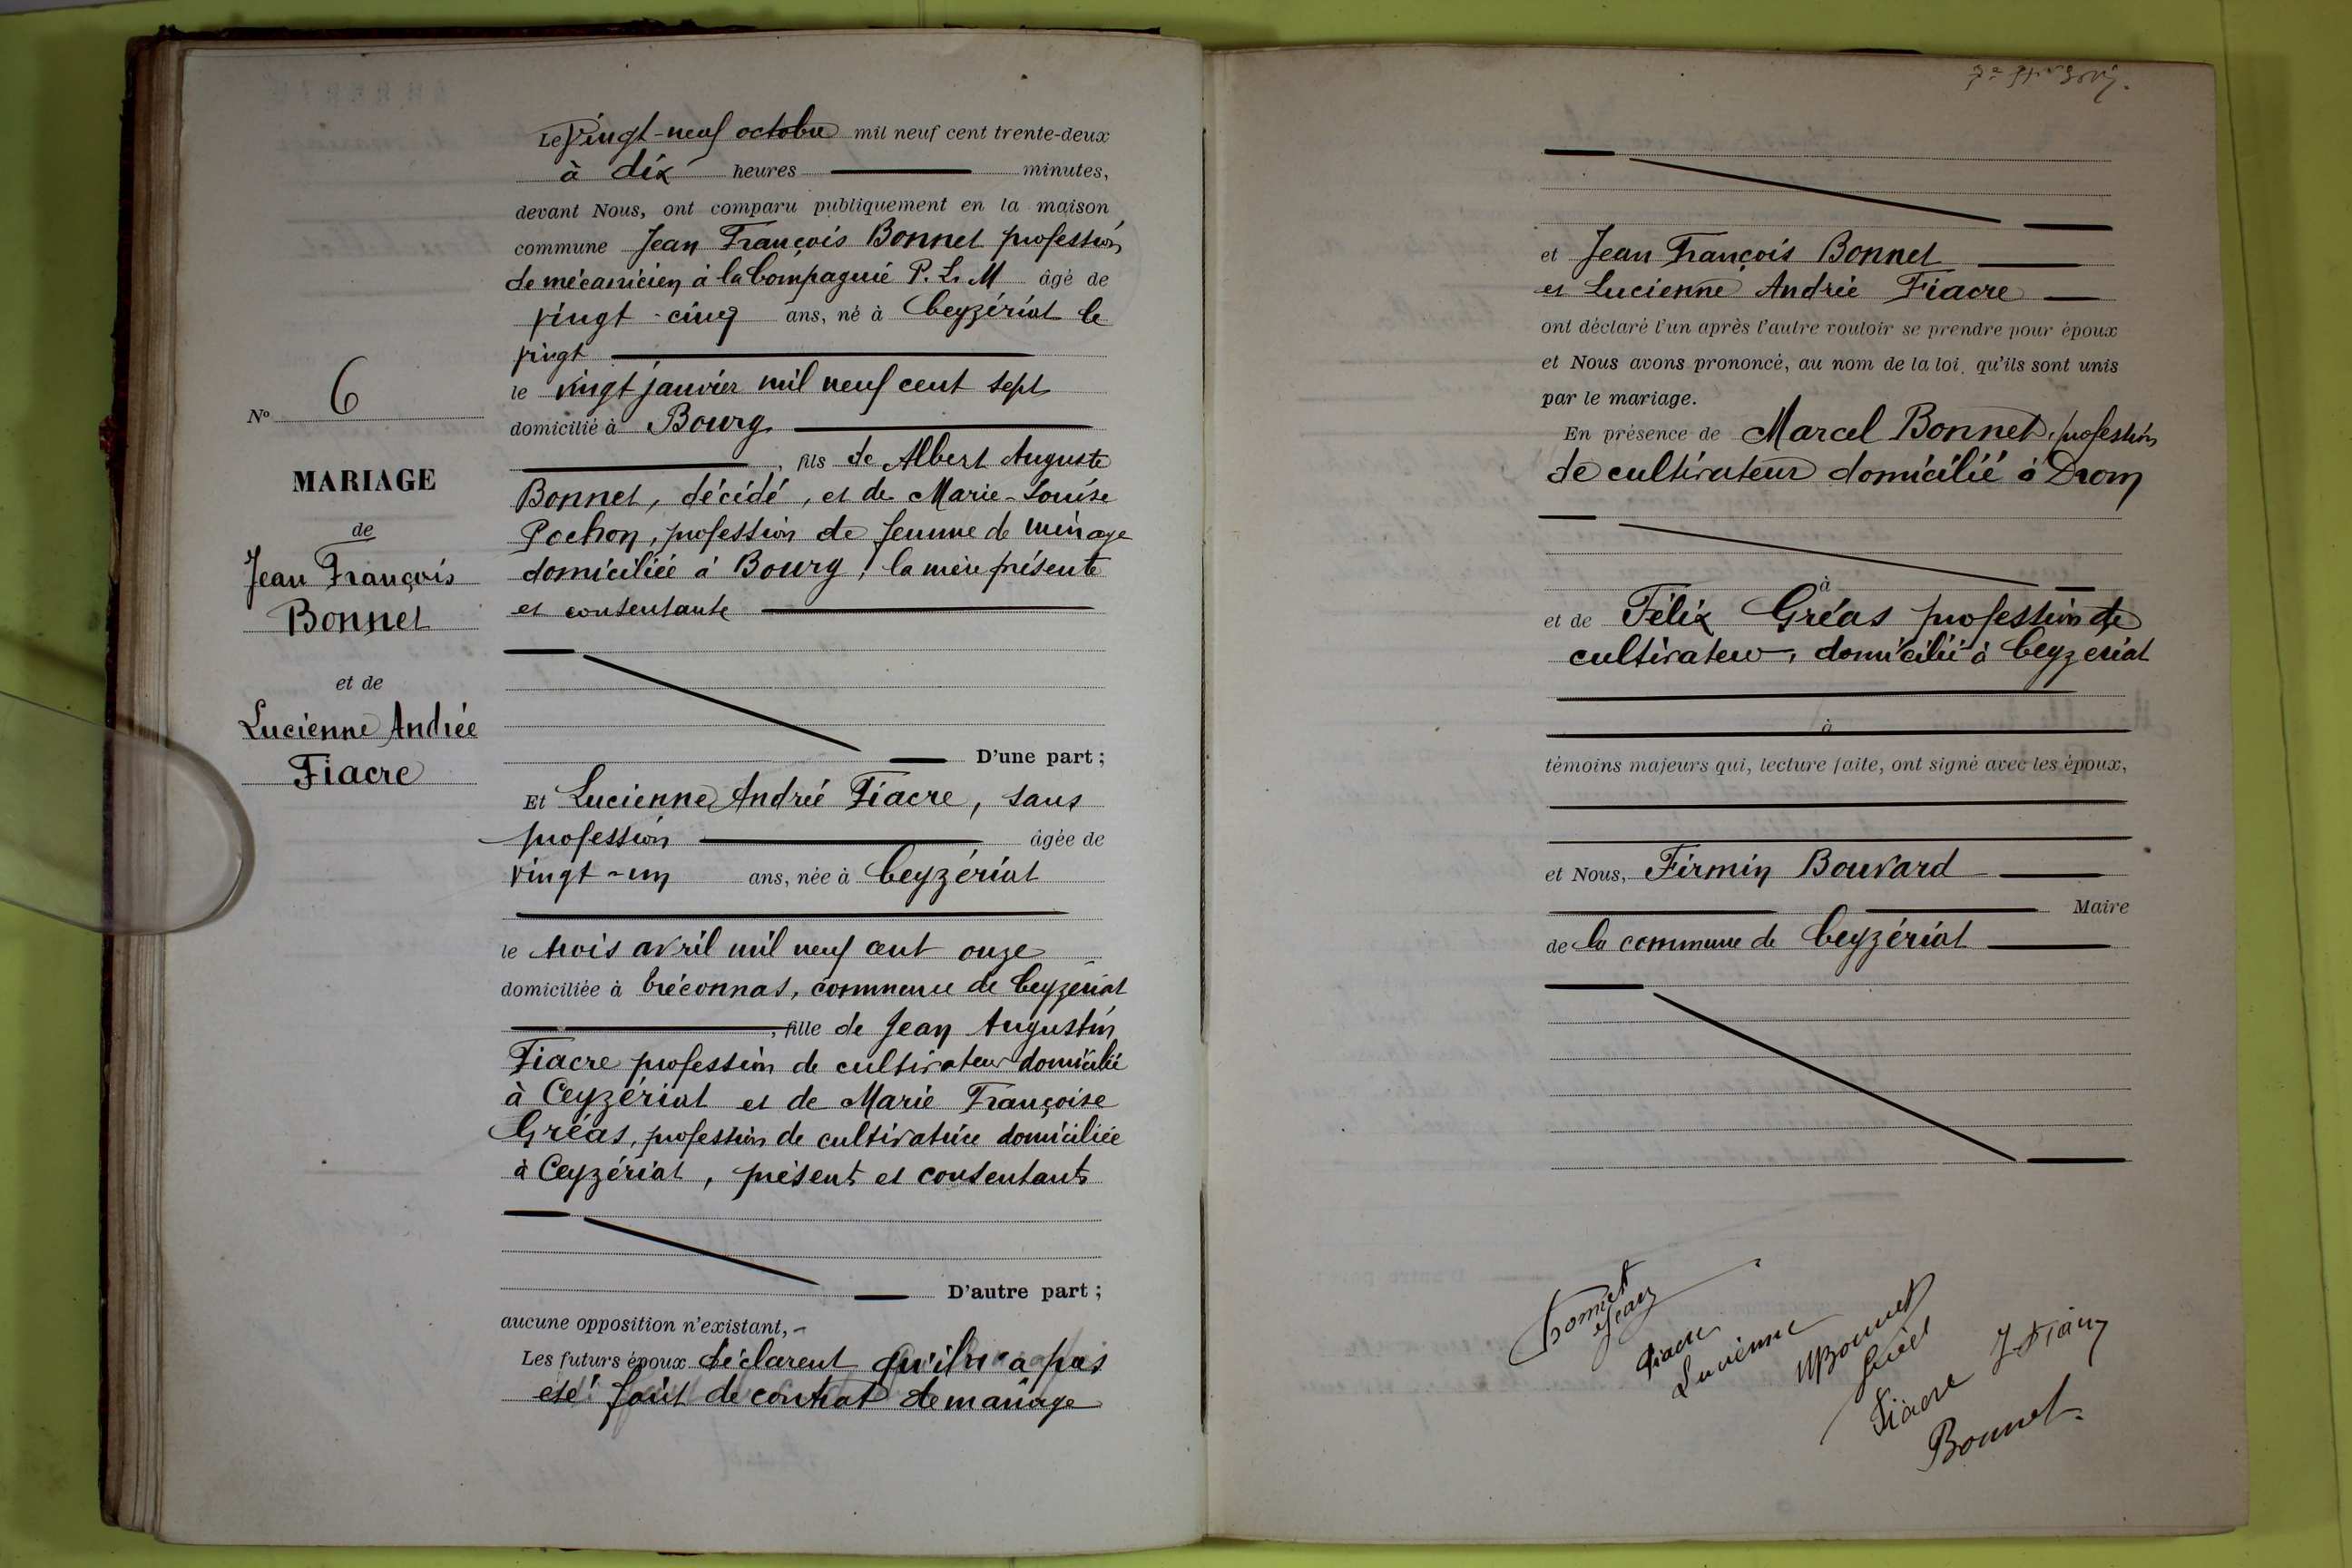 N° 6
MARIAGE
de
Jean François
Bonnet
et de
Lucienne Andrée
Fiacre
Le vingt-neuf octobre mil neuf cent trente-deux
à dix heures minutes,
devant Nous, ont comparu publiquement en la maison
commune Jean François Bonnet profession
de mécanicien à la Compagnie P. L. M âgé de
vingt-cinq ans, né à Ceyzériat le
vingt
le vingt janvier mil neuf cent sept
domicilié à Bourg
, fils de Albert Auguste
Bonnet, décédé, et de Marie-Louise
Pochon, profession de femme de ménage
domiciliée à Bourg, la mère présente
et consentante
D'une part ;
Et Lucienne Andrée Fiacre, sans
profession âgée de
vingt-un ans, née à Ceyzériat
le trois avril mil neuf cent onze
domiciliée à Créconnas, commune de Ceyzériat
, fille de Jean Augustin
Fiacre profession de cultivateur domicilié
à Ceyzériat et de Marie Françoise
Gréas, profession de cultivatrice domiciliée
à Ceyzériat, présents et consentants
D'autre part ;
aucune opposition n'existant,
Les futurs époux déclarent qu'il n'a pas
été fait de contrat de mariage
et Jean François Bonnet
et Lucienne Andrée Fiacre
ont déclaré l'un après l'autre vouloir se prendre pour époux
et Nous avons prononcé, au nom de la loi, qu'ils sont unis
par le mariage.
En présence de Marcel Bonnet, profession
de cultivateur domicilié à Drom
à
et de Félix Gréas profession de
cultivateur, domicilié à Ceyzériat
à
témoins majeurs qui, lecture faite, ont signé avec les époux,
et Nous, Firmin Bouvard
Maire
de la commune de Ceyzériat
Bonnet
Jean
Fiacre
Lucienne
MBonnet
Fiacre
Bonnet